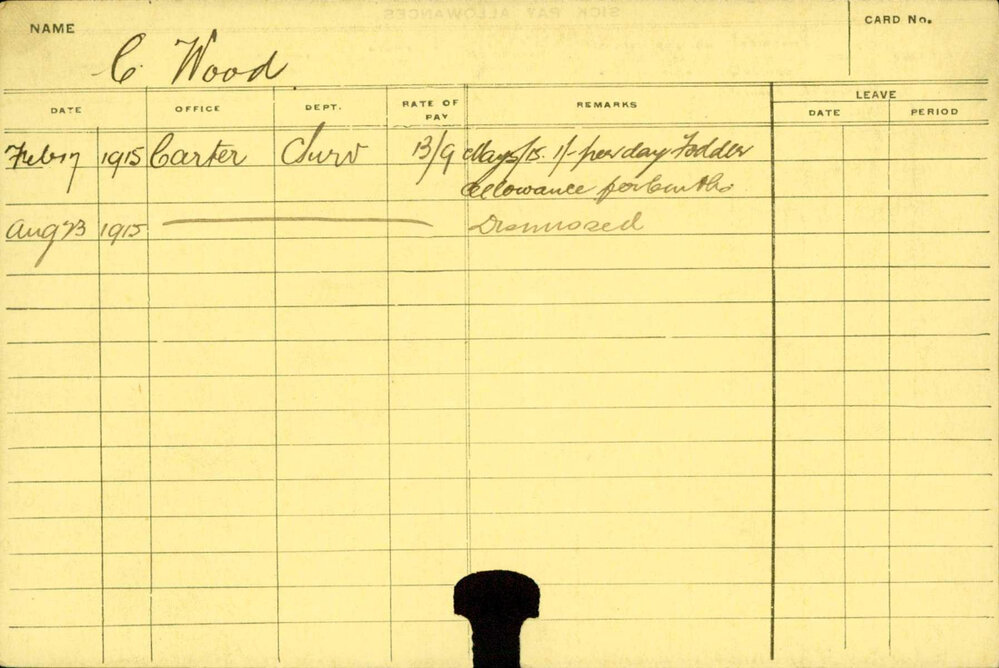 NAME
CARD No.
C. Wood
DATE OFFICE DEPT. RATE OF PAY REMARKS LEAVE
DATE PERIOD
Feb 17 1915 Carter Surv 13/9 May 5/15. 1/- per day Fodder
allowance for 6 mths.
Aug 23 1915 Dismissed